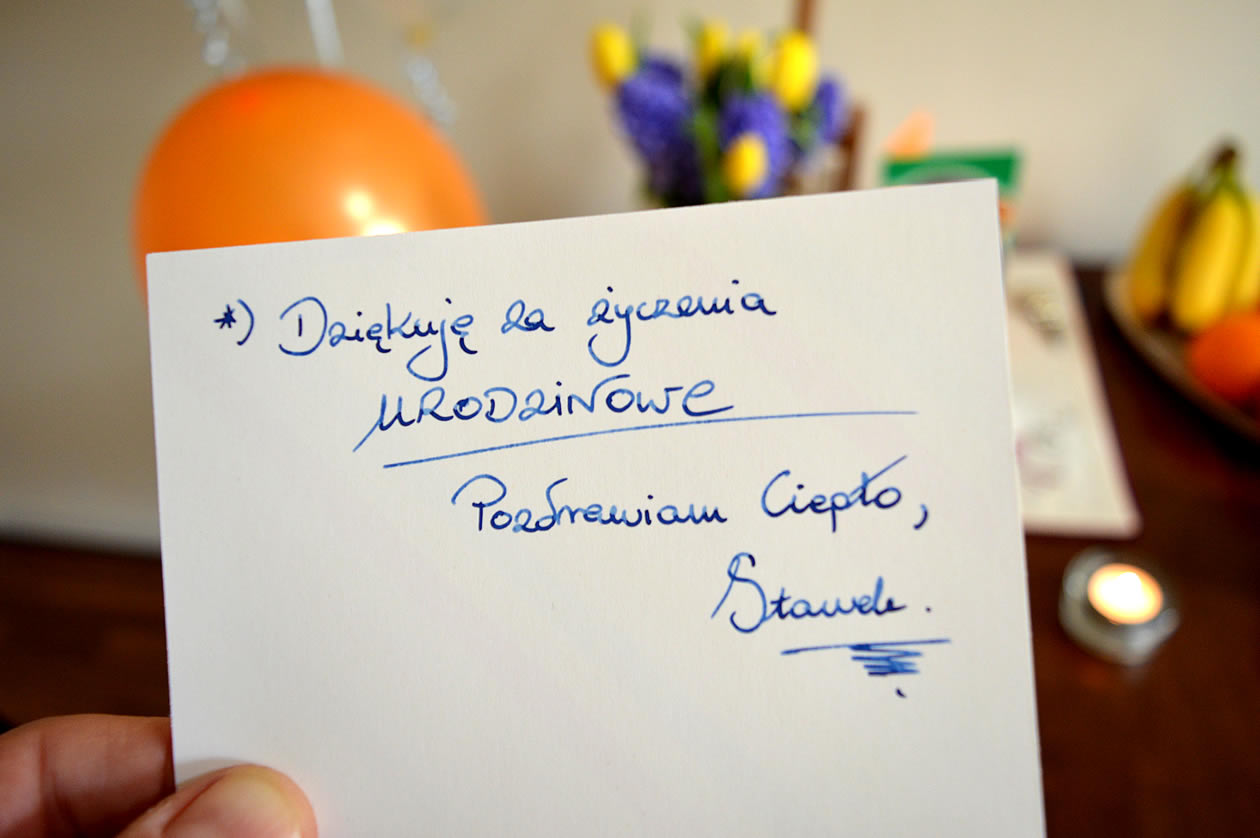 *) Dziękuję za życzenia
URODZINOWE
Pozdrawiam Ciepło,
Sławek.